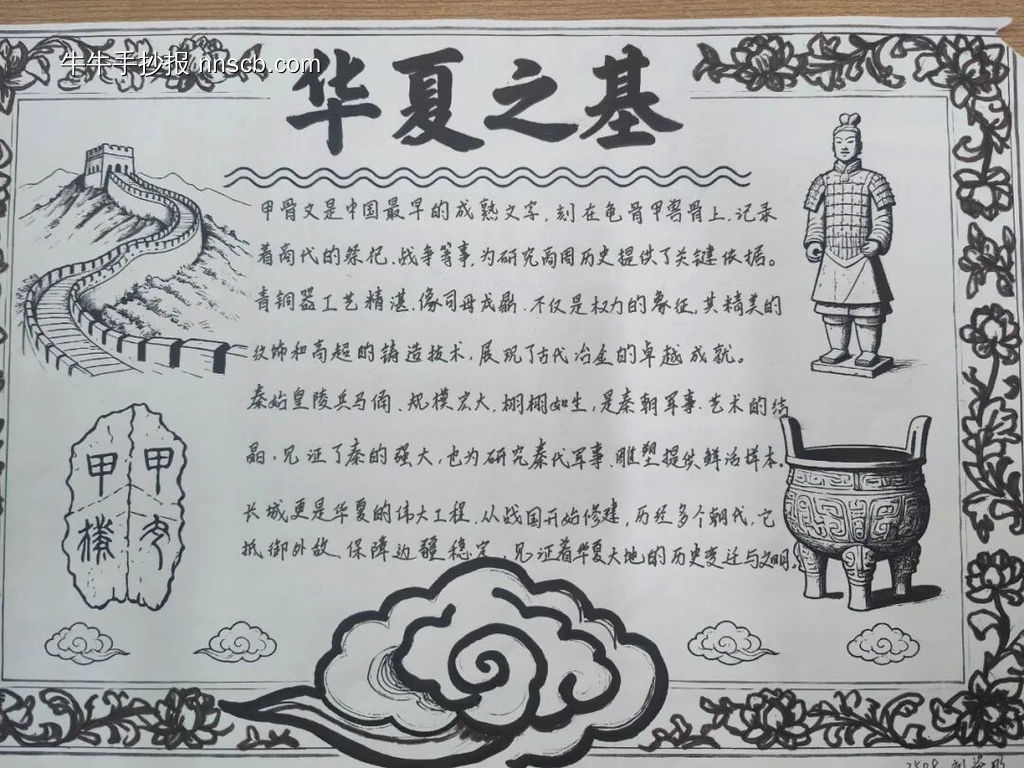 牛牛手抄报 nnscb.com
华夏之基
甲骨文是中国最早的成熟文字，刻在龟骨甲兽骨上，记录
着商代的祭祀、战争等事，为研究商周历史提供了关键依据。
青铜器工艺精湛，像司母戊鼎，不仅是权力的象征，其精美的
纹饰和高超的铸造技术，展现了古代冶金的卓越成就。
秦始皇陵兵马俑、规模宏大，栩栩如生，是秦朝军事、艺术的结
晶，见证了秦的强大，也为研究秦代军事、雕塑提供鲜活样本。
长城更是华夏的伟大工程，从战国开始修建，历经多个朝代，它
抵御外敌、保障边疆稳定，见证着华夏大地的历史变迁与文明。
甲 甲
2508